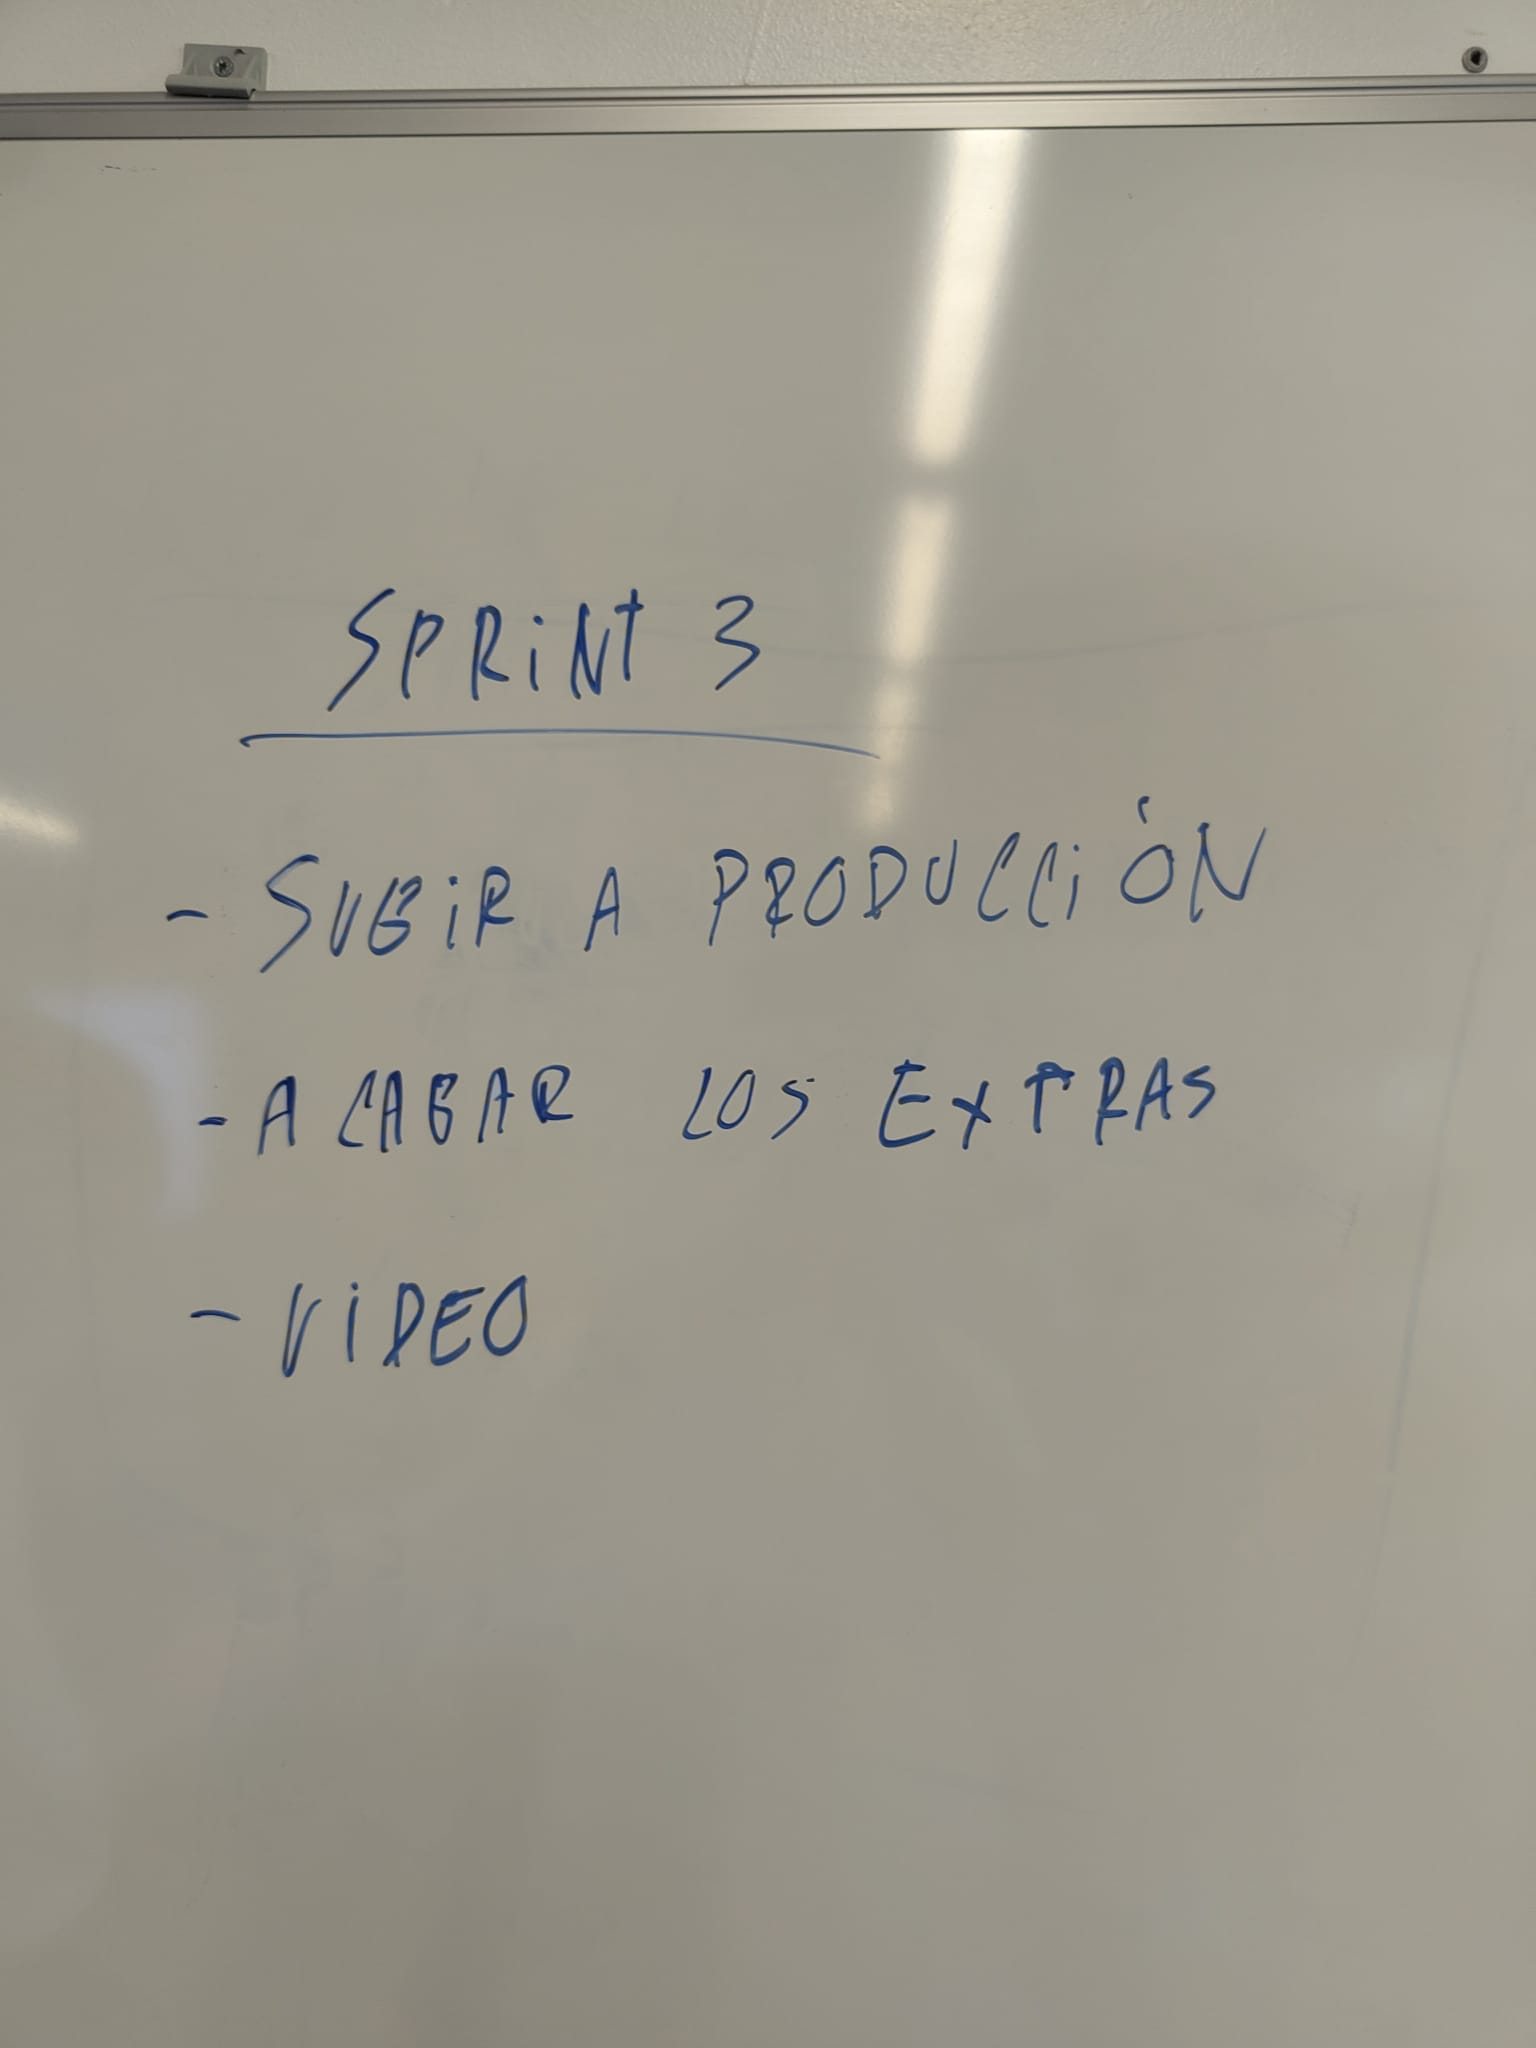 SPRINT 3
- SUBIR A PRODUCCIÓN
- ACABAR LOS EXTRAS
- VIDEO